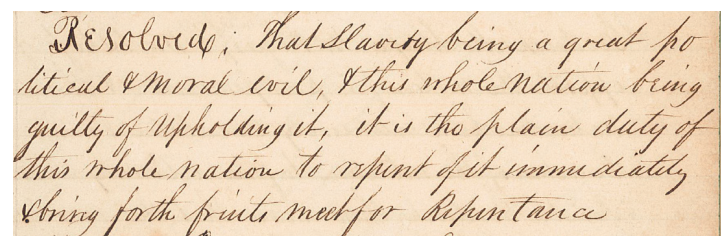 Resolved; That Slavery being a great po
litical & moral evil, & this whole nation being
guilty of upholding it, it is the plain duty of
this whole nation to repent of it immediately
& bring forth fruits meet for Repentance